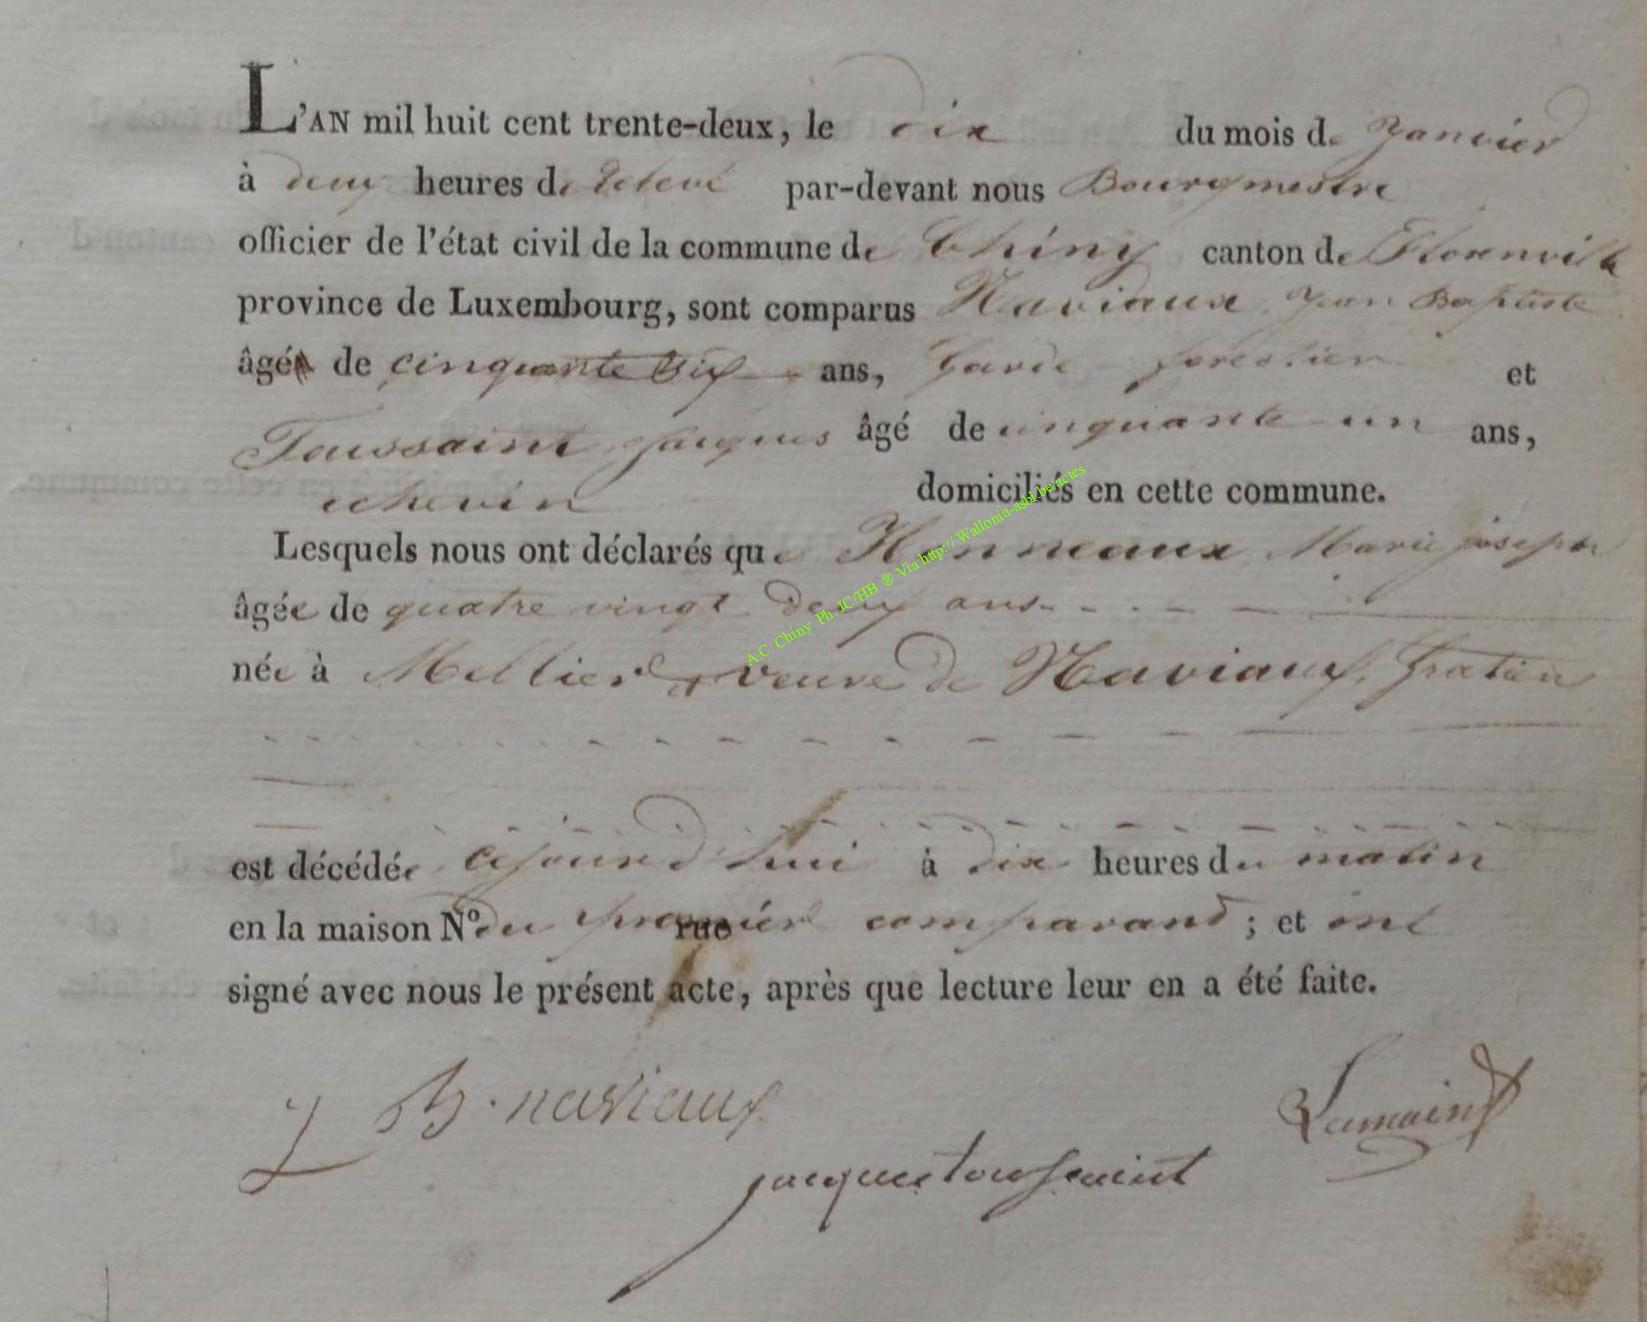 L'AN mil huit cent trente-deux, le dix du mois de Janvier
à deux heures de relevé par-devant nous Bourgmestre
officier de l'état civil de la commune de Chiny canton de Florenville
province de Luxembourg, sont comparus Naviaux, Jean Baptiste
âgé de cinquante six ans, Garde forestier et
Toussaint Jacques âgé de cinquante un ans,
echevin domiciliés en cette commune.
Lesquels nous ont déclarés que Honneaux Marie joseph
âgée de quatre vingt deux ans
née à Mellier veuve de Naviaux, Gratien
est décédée cejourd'hui à dix heures du matin
en la maison N.º du premier rue comparant ; et ont
signé avec nous le présent acte, après que lecture leur en a été faite.
J B. naviaux
Lamain
jacques toussaint
A.C. Chiny Ph. JC/HB ® Via http://Wallonia-asbl.be/actes